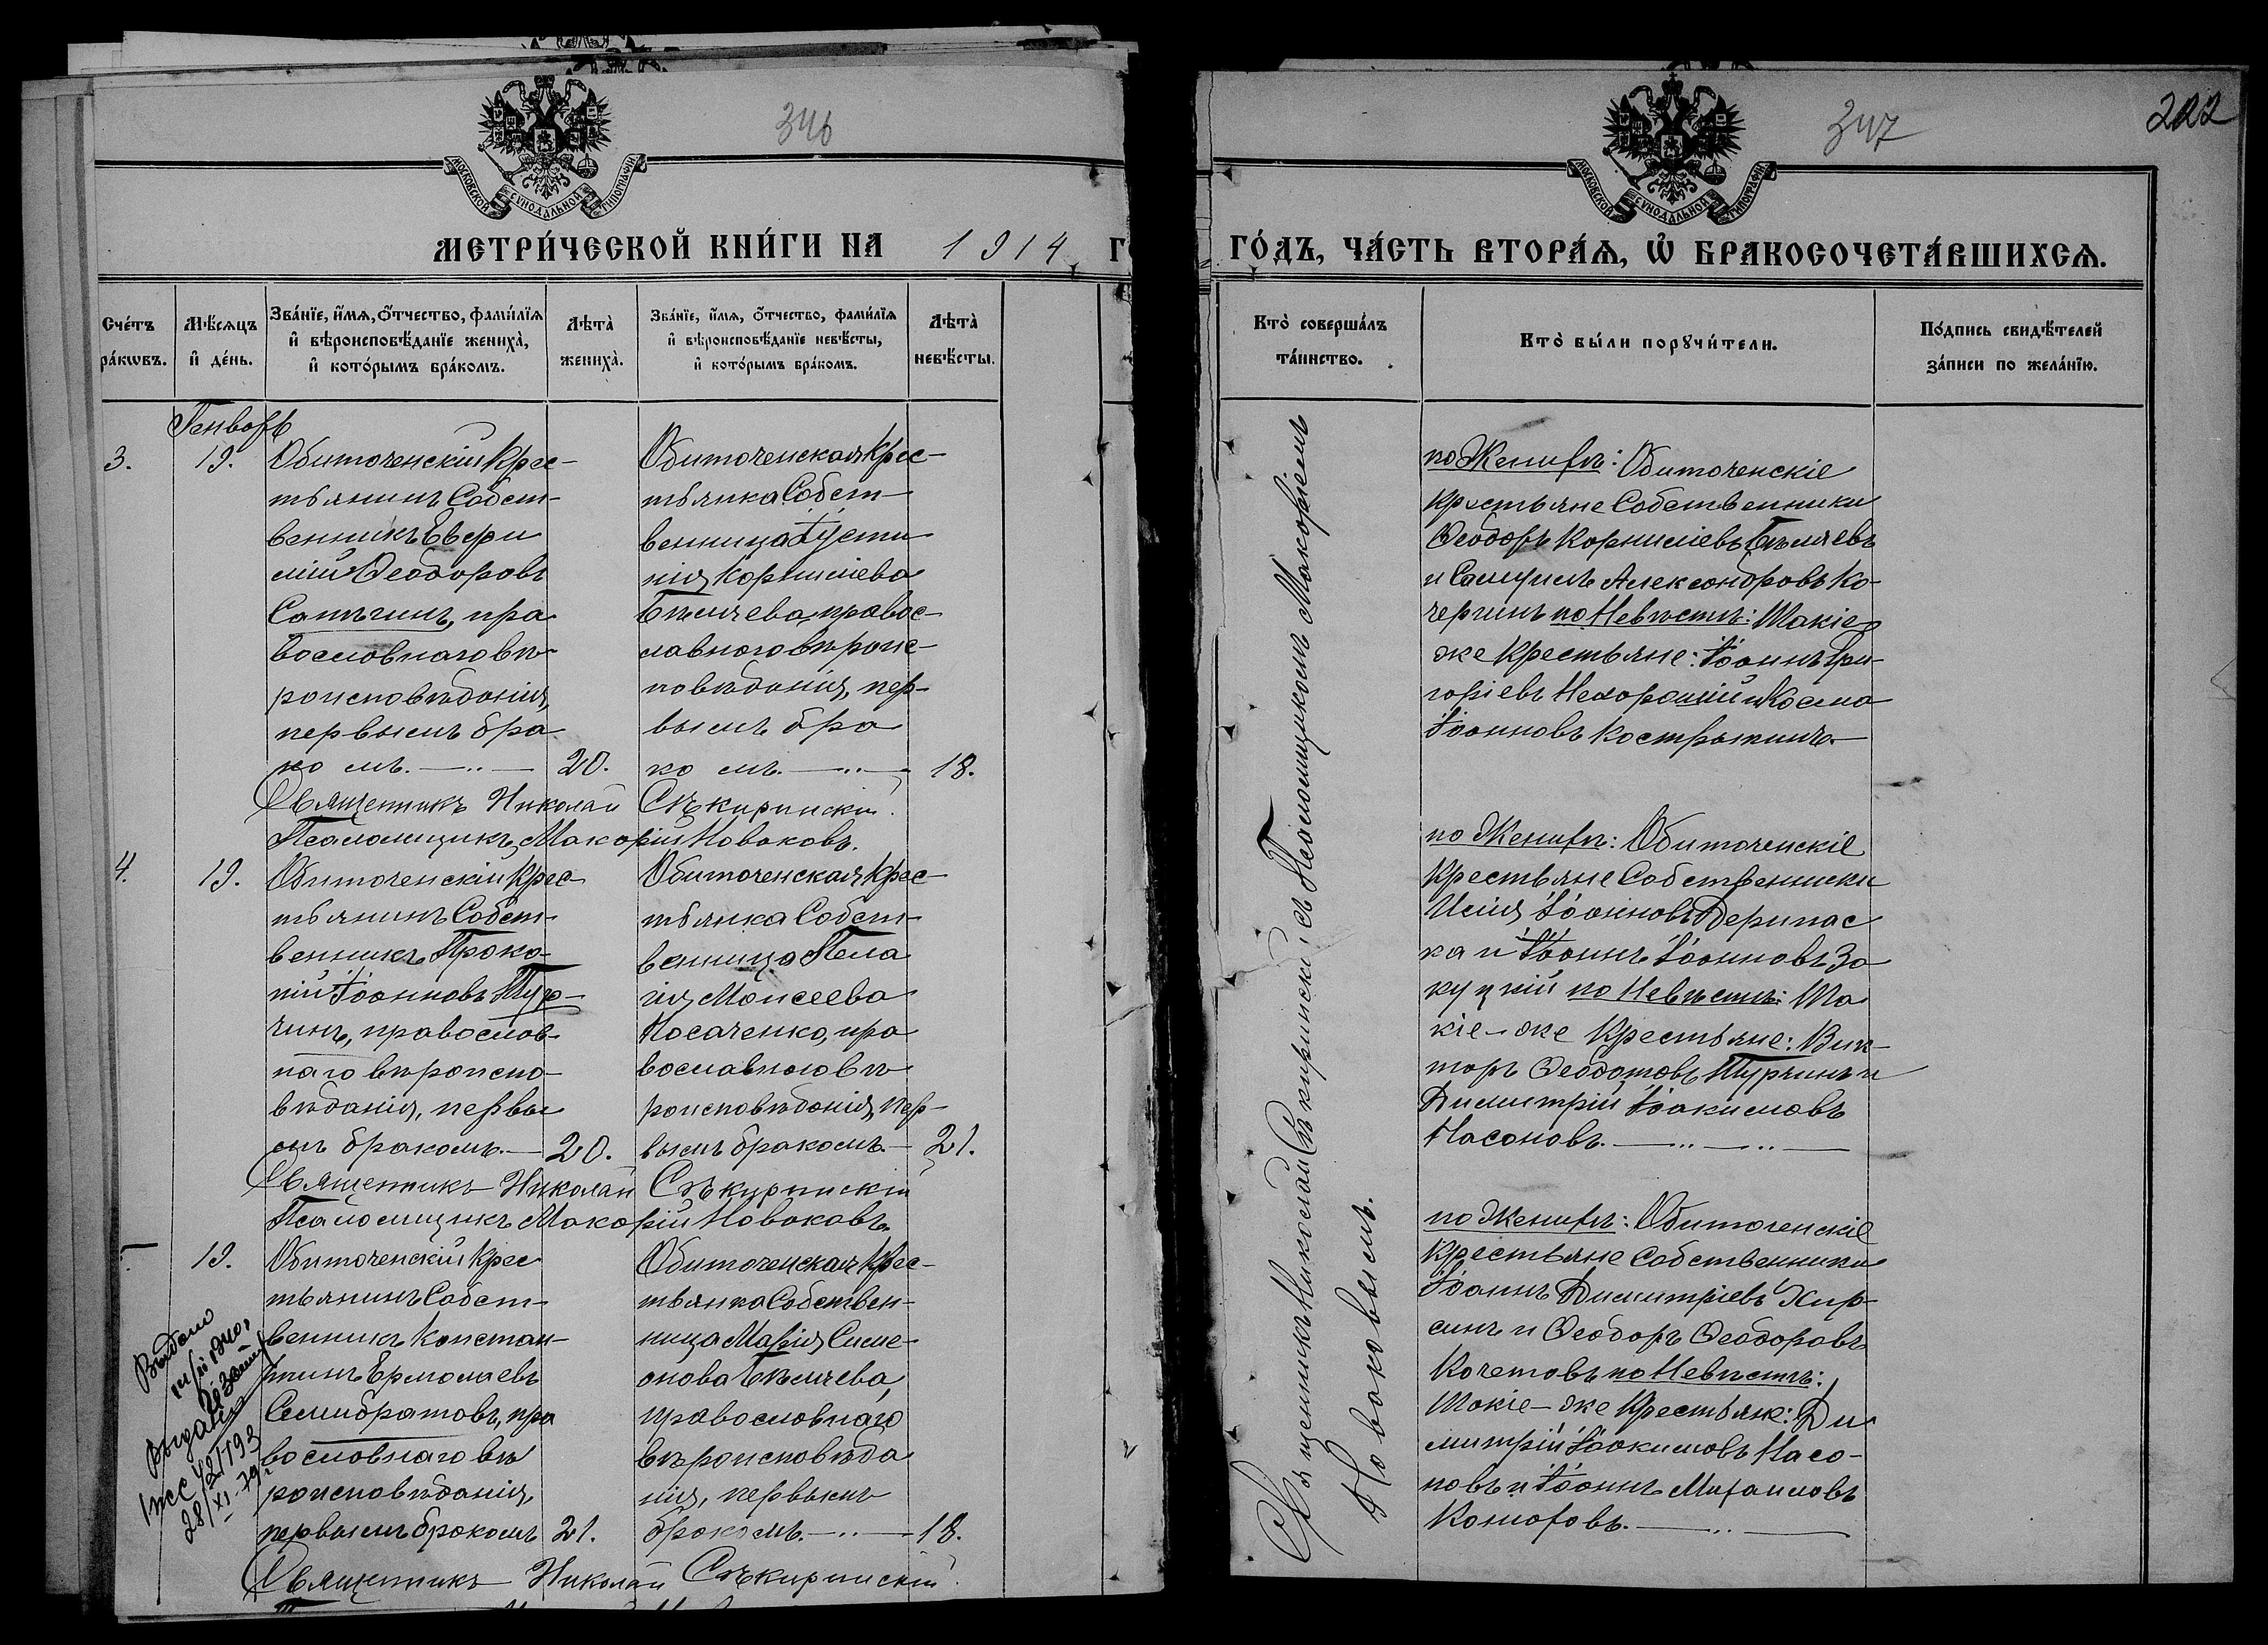 346
МОСКОВСКОЙ СѴНОДАЛЬНОЙ ТИПОГРАФІИ
МЕТРИ́ЧЕСКОЙ КНИ́ГИ НА 1914
Сче́тъ
ра́кѡвъ.
Мѣ́сяцъ
и҆ де́нь.
Зва́нїе, и҆́мѧ, ѻ҆́тчество, фами́лїѧ
и҆ вѣроисповѣ́данїе жениха̀,
и҆ кото́рымъ бра́комъ.
Лѣта̀
жениха̀.
Зва́нїе, и҆́мѧ, ѻ҆́тчество, фами́лїѧ
и҆ вѣроисповѣ́данїе невѣ́сты,
и҆ кото́рымъ бра́комъ.
Лѣта̀
невѣ́сты.
Генварь
3.
19.
Обиточенскій Крес-
тьянинъ Собст-
венникъ Евфи
мій Ѳеодоровъ
Сапъгинъ, пра
вославнаго вѣ
роисповѣданія,
первымъ бра
комъ.
20.
Обиточенская Крес-
тьянка Собст-
венница Іусти
нія Корниліева
Бѣляева, правос-
лавнаго вѣроис-
повѣданія, пер-
вымъ бра
комъ.
18.
Священникъ Николай Сѣкиринскій.
Псаломщикъ Макарій Новаковъ.
4.
19.
Обиточенскій Крес-
тьянинъ Собст-
венникъ Проко-
пій Іоанновъ Тур-
чинъ, православ-
наго вѣроиспо-
вѣданія, первы
мъ бракомъ.
20.
Обиточенская Крес-
тьянка Собст-
венница Пела
гія Моисеева
Носаченко, пра
вославнаго вѣ
роисповѣданія, пер-
вымъ бракомъ.
21.
Священникъ Николай Сѣкиринскій
Псаломщикъ Макарій Новаковъ.
19.
Обиточенскій Крес
тьянинъ Собст-
венникъ Констан-
тинъ Ермолаевъ
Семибратовъ, пра
вославнаго вѣ
роисповѣданія,
первымъ бракомъ
21.
Обиточенская Крес-
тьянка Собствен-
ница Марія Симе-
онова Бѣляева,
православнаго
вѣроисповѣда
нія, первымъ
бракомъ.
18.
Священникъ Николай Сѣкиринскій.
28/XI-79г
347
222
МОСКОВСКОЙ СѴНОДАЛЬНОЙ ТИПОГРАФІИ
ГО́ДЪ, ЧА́СТЬ ВТОРА́Ѧ, Ѽ БРАКОСОЧЕТА́ВШИХСѦ.
Кто̀ соверша́лъ
та́инство.
Кто̀ бы́ли порꙋчи́тели.
По́дпись свидѣ́телей
за́писи по жела́нїю.
Священникъ Николай Сѣкиринскій съ Псаломщикомъ Макаріемъ
Новаковымъ.
по Женихѣ: Обиточенскіе
Крестьяне Собственники
Ѳеодоръ Корниліевъ Бѣляевъ
и Самуилъ Александровъ Ко-
чергинъ по Невѣстѣ: Такіе
же Крестьяне: Іоаннъ Гри-
горіевъ Нехорошій и Косма
Іоанновъ Кострыкинъ.
по Женихѣ: Обиточенскіе
Крестьяне Собственники
Исаія Іоанновъ Дерипас
ка и Іоаннъ Іоанновъ За
куцкій по Невѣстѣ: Та
кіе-же Крестьяне: Вик-
торъ Ѳеодотовъ Турчинъ и
Димитрій Іоакимовъ
Насоновъ.
по Женихѣ: Обиточенскіе
Крестьяне Собственники
Іоаннъ Димитріевъ Хир-
синъ и Ѳеодоръ Ѳеодоровъ
Кочетовъ по Невѣстѣ:
Такіе-же Крестьяне: Ди
митрій Іоакимовъ Насо-
новъ и Іоаннъ Михаиловъ
Комаровъ.